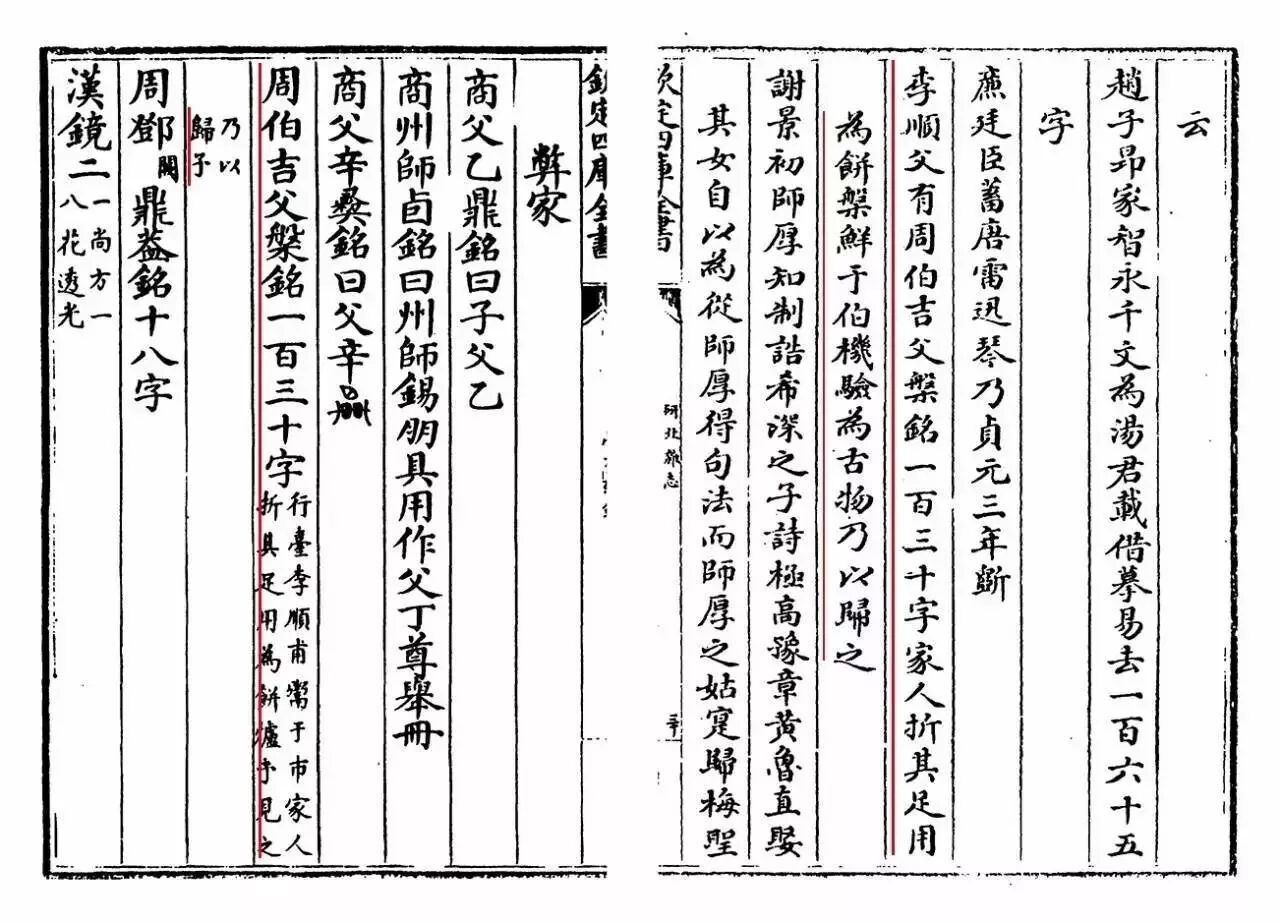 云
趙子昻家智永千文為湯君載借摹易去一百六十五
字
㢘廷臣蓄唐雷迅琴乃貞元三年斵
李順父有周伯吉父槃銘一百三十字家人折其足用
為餅槃鮮于伯機驗為古物乃以歸之
謝景初師厚知制誥希深之子詩極高豫章黄魯直娶
其女自以為從師厚得句法而師厚之姑寔歸梅聖
欽定四庫全書
研北雜志
三十
欽定四庫全書
弊家
商父乙鼎銘曰子父乙
商州師卣銘曰州師錫朋具用作父丁尊舉冊
商父辛彛銘曰父辛
周伯吉父槃銘一百三十字行臺李順甫鬻于市家人
折其足用為餅爐予見之
乃以
歸予
周鄧闕鼎葢銘十八字
漢鏡二一尚方一
八花透光